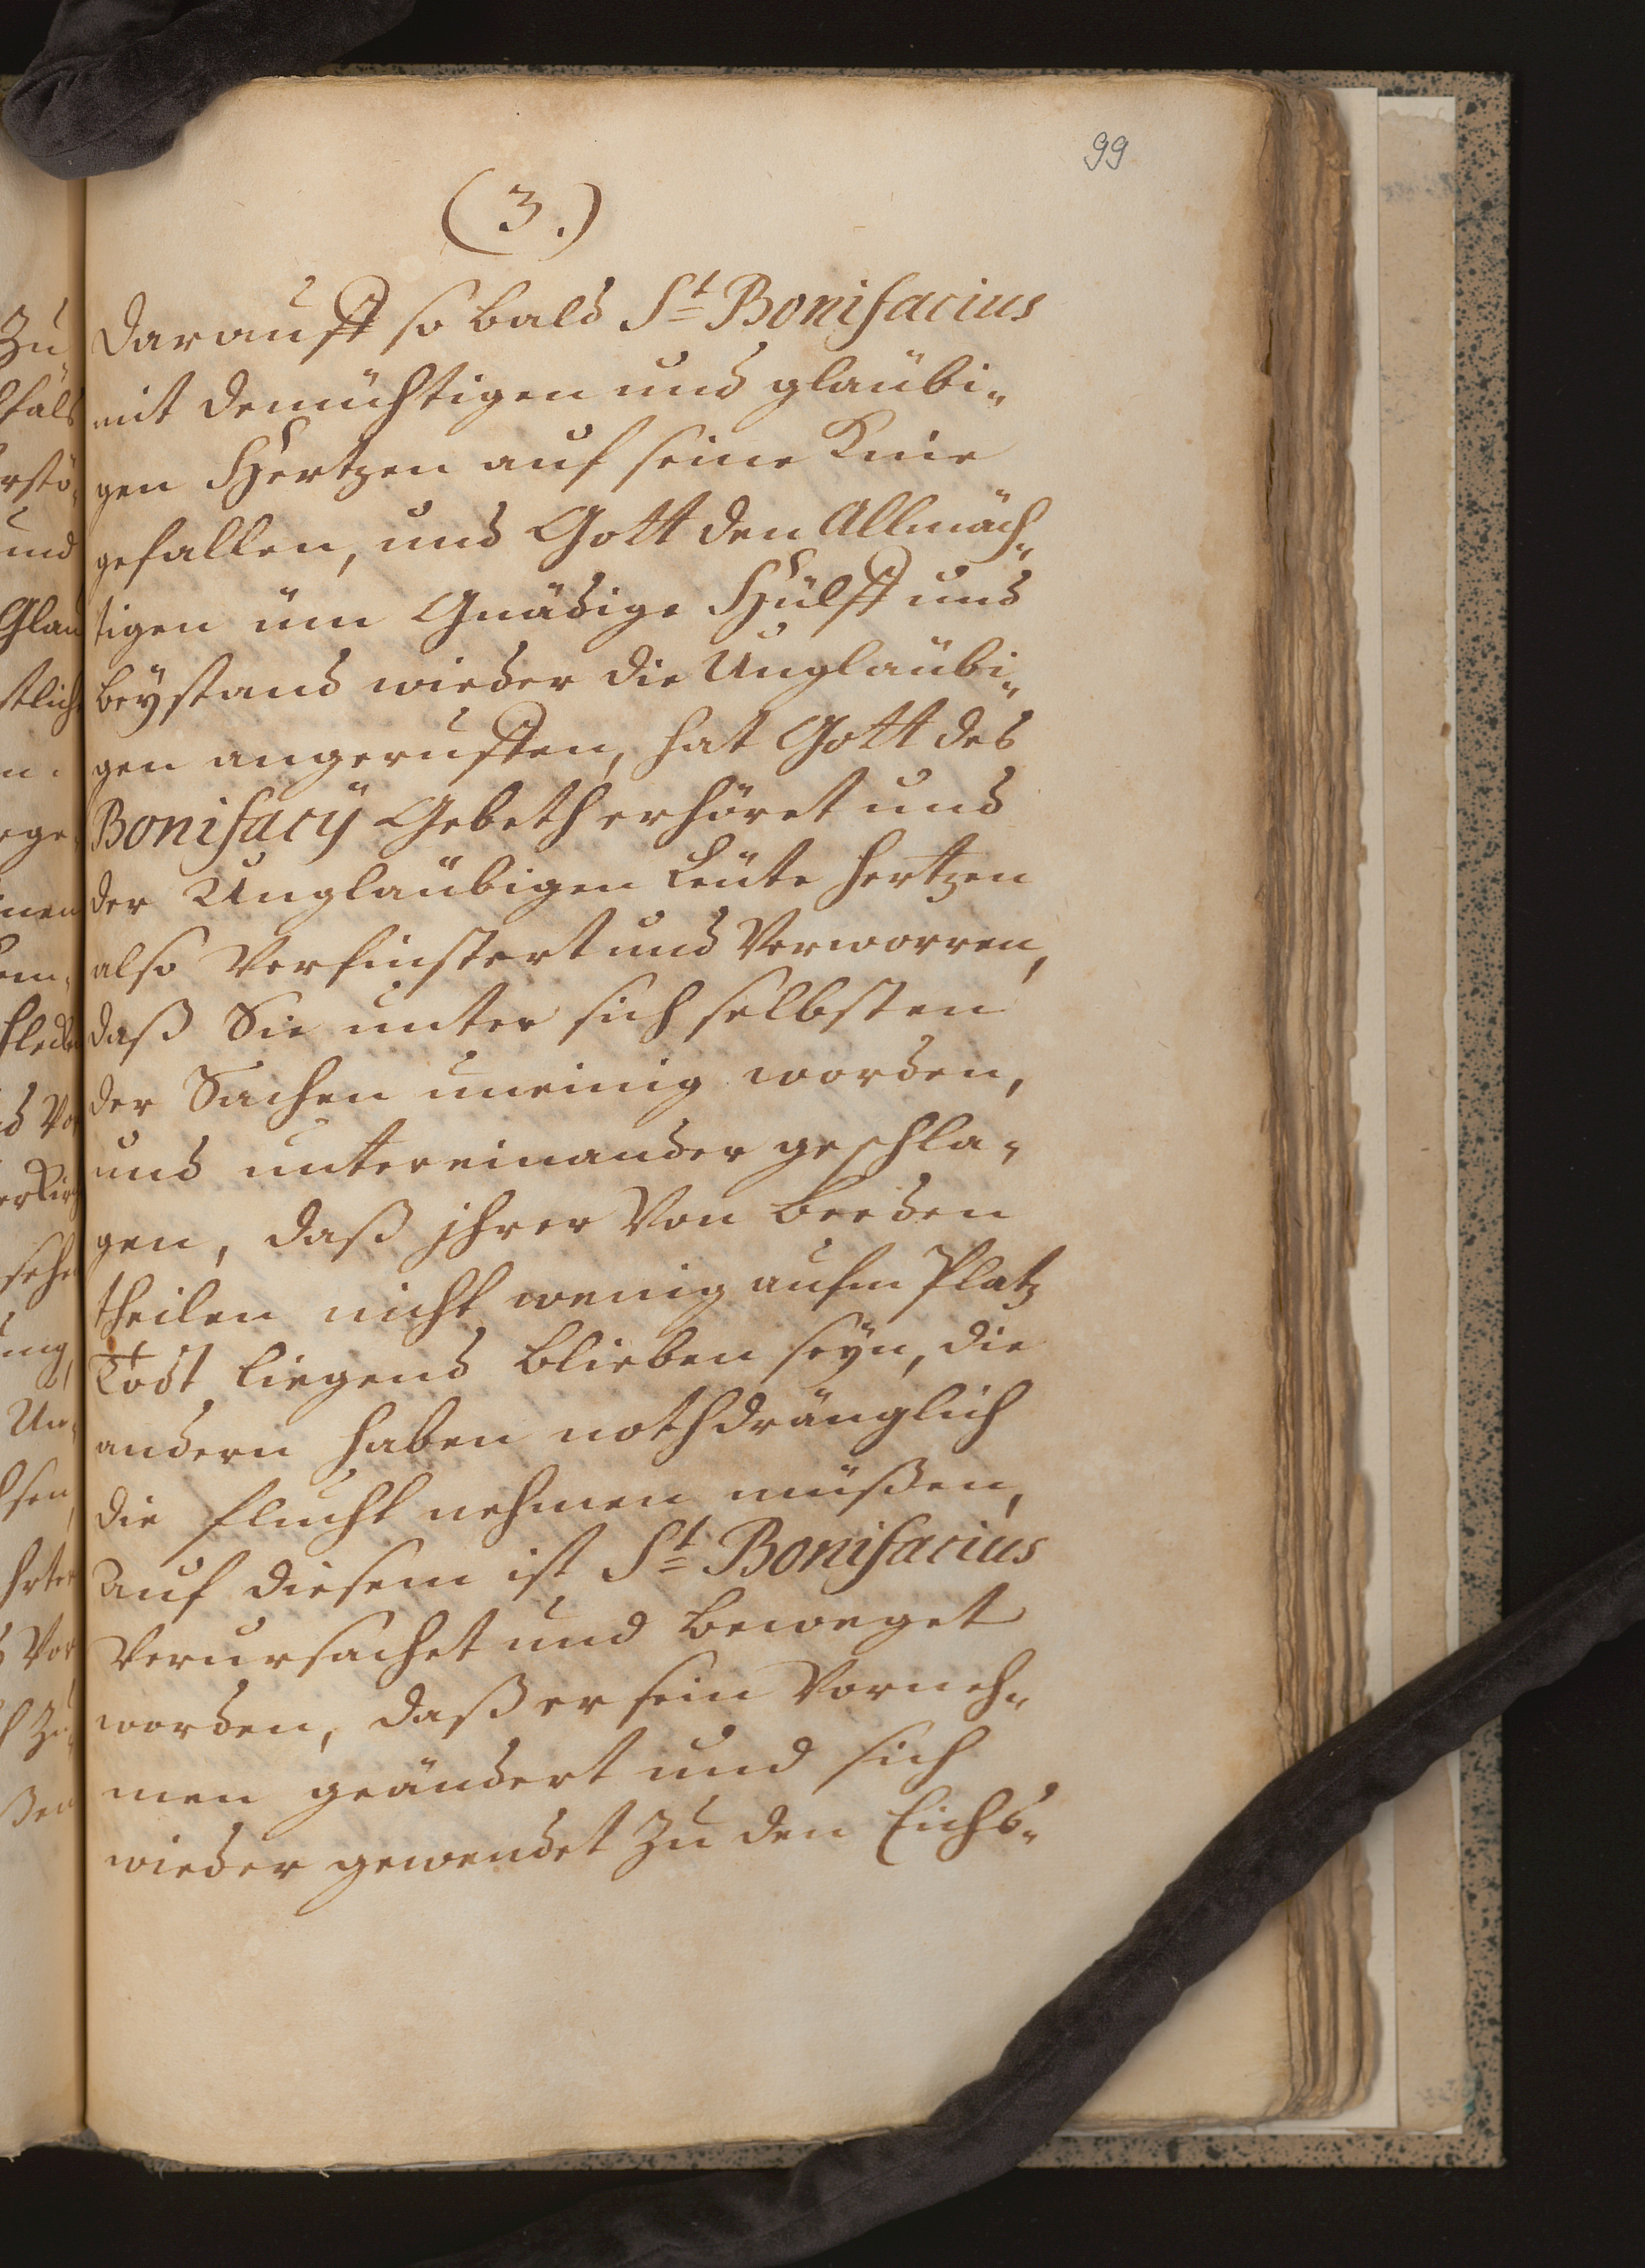 99
(3.)
darauff so bald St Bonifacius
mit demüthtigen und glaübi„
gen Hertzen auf seine Knie
gefallen, und Gott den Allmäch„
tigen üm Gnädige Hülff und
beÿstand wieder die Unglaübi„
gen angeruffen, hat Gott des
Bonifacÿ Gebeth erhöret und
der Unglaübigen Leüte hertzen
also Verfinstert und Verworren,
daß Sie unter sich selbsten
der Sachen uneinig worden,
und untereinander geschla„
gen, daß jhrer Von beeden
theilen nicht wenig aufm Platz
Todt liegend blieben seÿn, die
andern haben nothdränglich
die flucht nehmen müßen,
Auf diesem ist St Bonifacius
Verursachet und beweget
worden, daß er sein Vorneh„
men geändert und sich
wieder gewendet zu den Eichs„